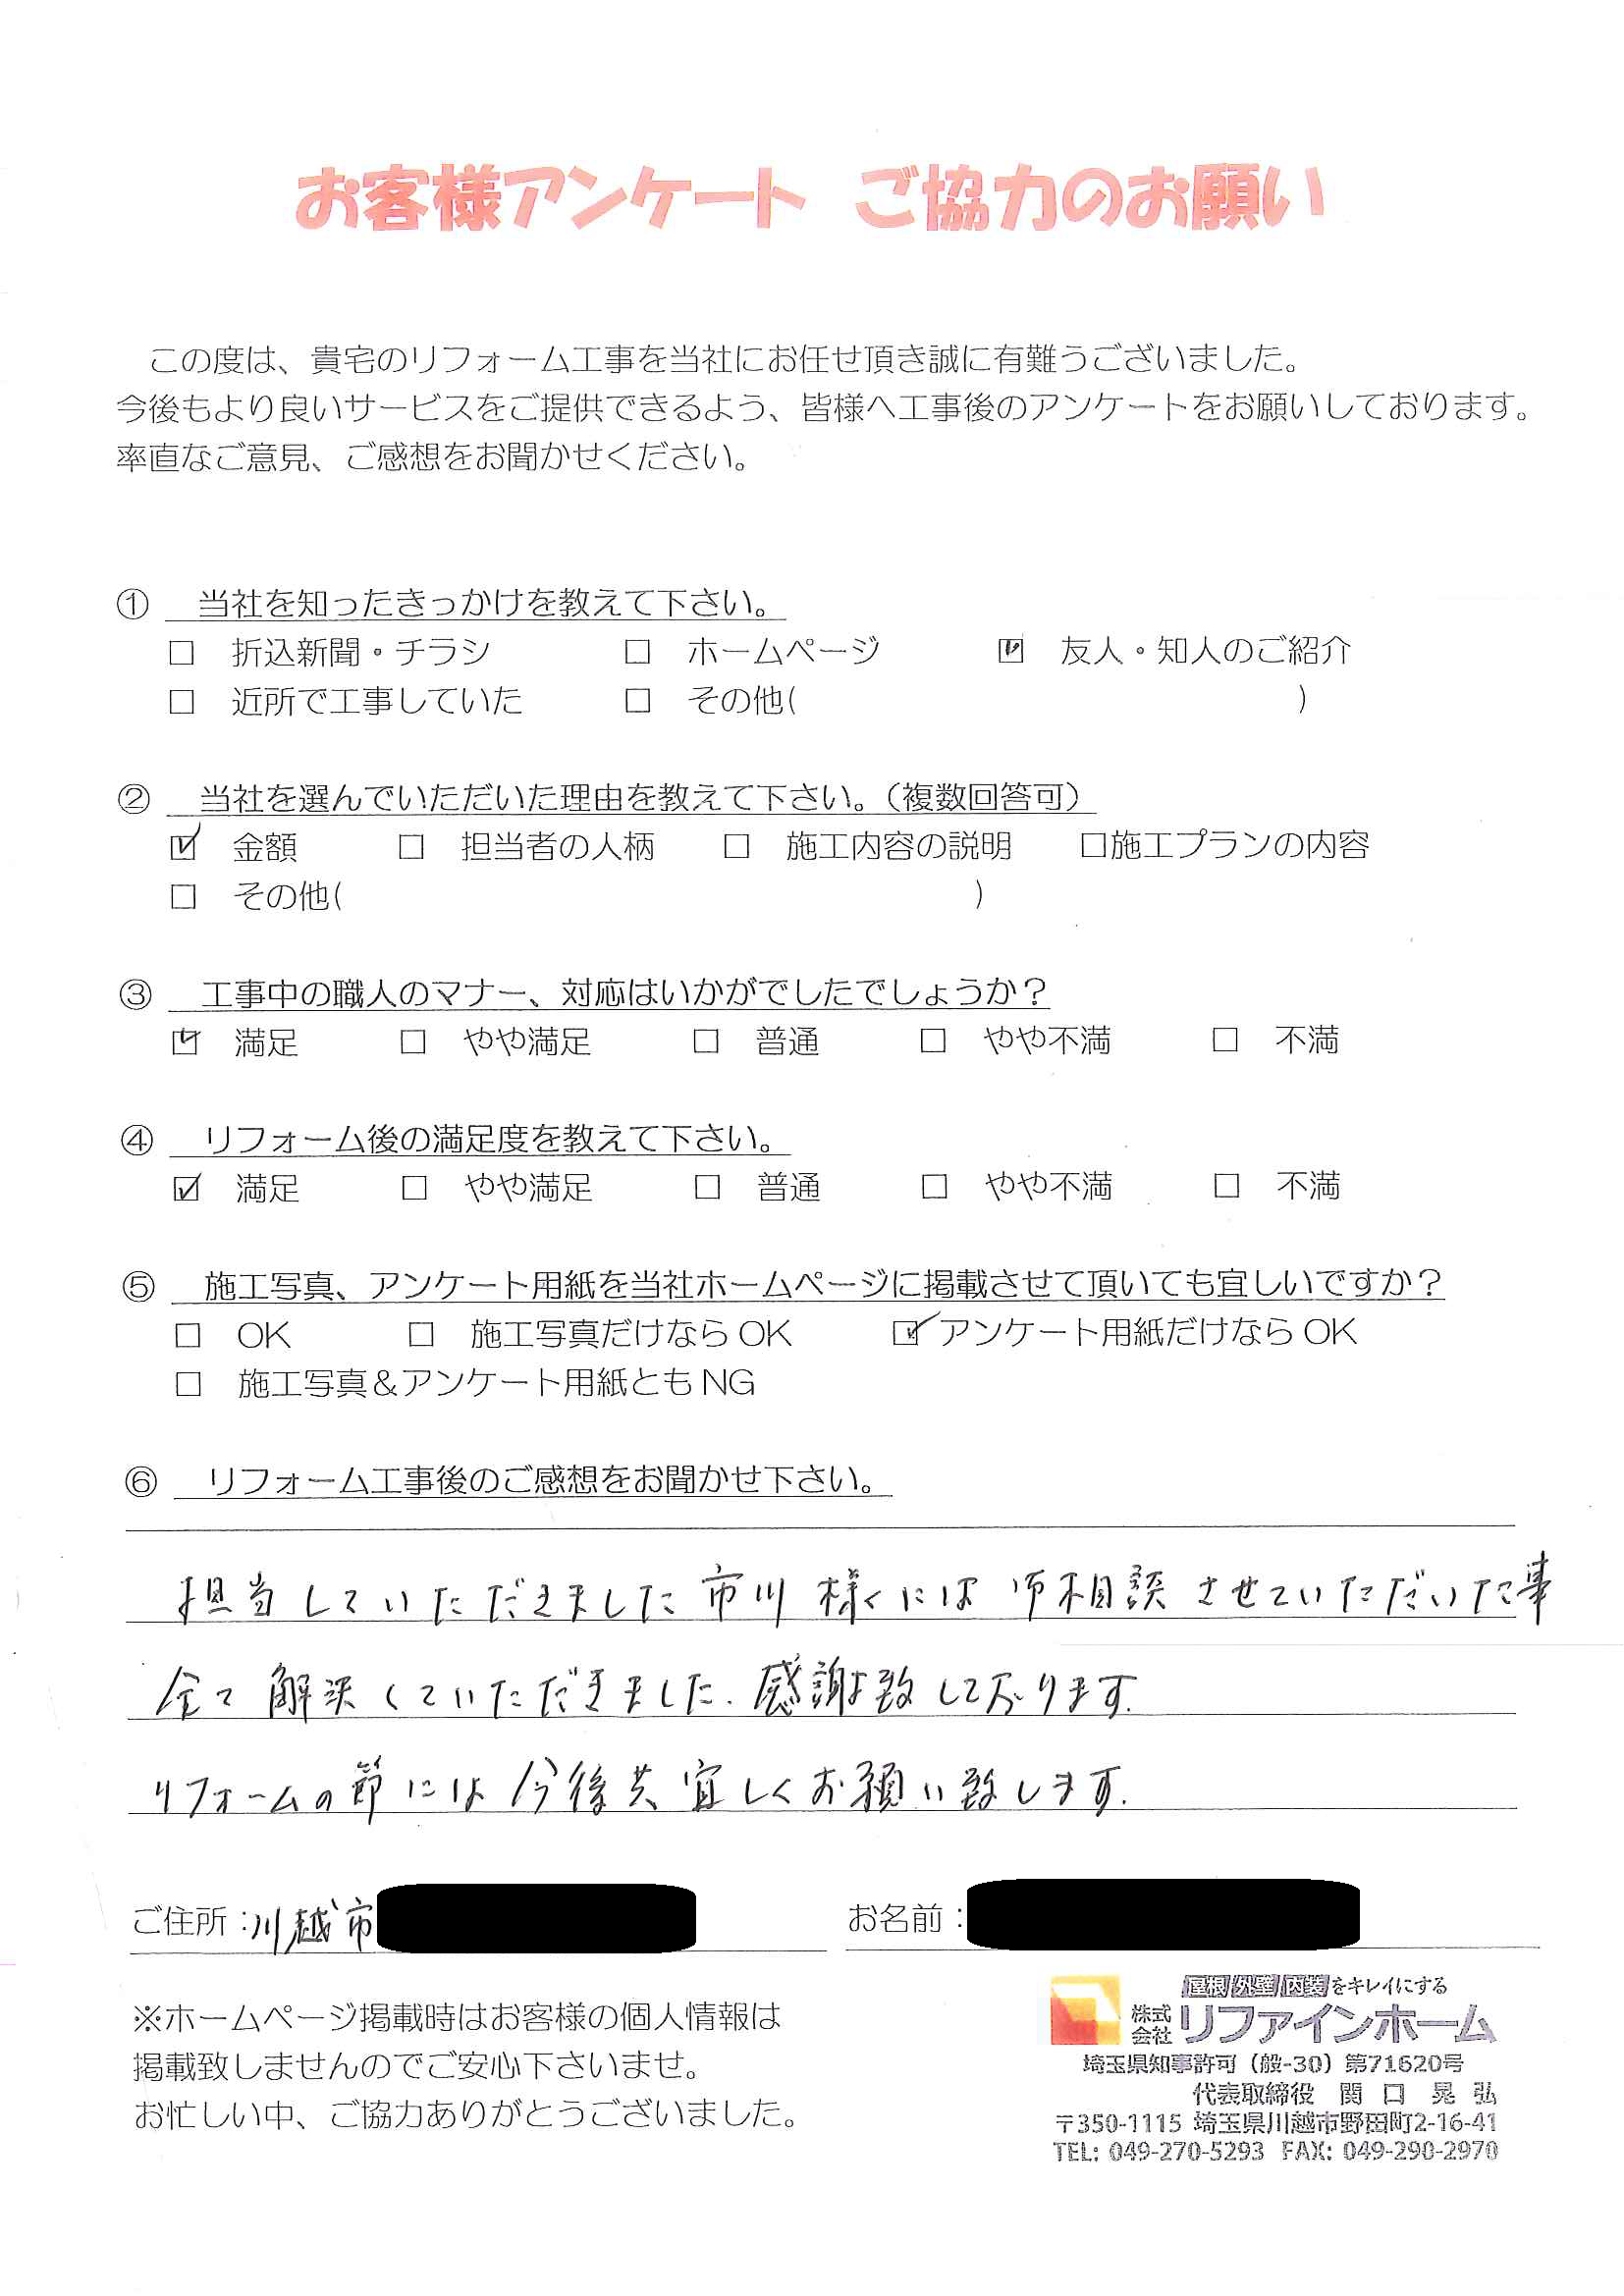 お客様アンケート ご協力のお願い
この度は、貴宅のリフォーム工事を当社にお任せ頂き誠に有難うございました。
今後もより良いサービスをご提供できるよう、皆様へ工事後のアンケートをお願いしております。
率直なご意見、ご感想をお聞かせください。
① 当社を知ったきっかけを教えて下さい。
□ 折込新聞・チラシ □ ホームページ ☑ 友人・知人のご紹介
□ 近所で工事していた □ その他( )
② 当社を選んでいただいた理由を教えて下さい。(複数回答可)
☑ 金額 □ 担当者の人柄 □ 施工内容の説明 □施工プランの内容
□ その他( )
③ 工事中の職人のマナー、対応はいかがでしたでしょうか?
☑ 満足 □ やや満足 □ 普通 □ やや不満 □ 不満
④ リフォーム後の満足度を教えて下さい。
☑ 満足 □ やや満足 □ 普通 □ やや不満 □ 不満
⑤ 施工写真、アンケート用紙を当社ホームページに掲載させて頂いても宜しいですか?
□ OK □ 施工写真だけなら OK ☑ アンケート用紙だけなら OK
□ 施工写真&アンケート用紙とも NG
⑥ リフォーム工事後のご感想をお聞かせ下さい。
担当していただきました市川様には 相談させていただいた事
全て解決していただきました.感謝致しております.
リフォームの節には今後共宜しくお願い致します.
ご住所:川越市 お名前:
※ホームページ掲載時はお客様の個人情報は
掲載致しませんのでご安心下さいませ。
お忙しい中、ご協力ありがとうございました。
屋根 外壁 内装をキレイにする
株式会社 リファインホーム
埼玉県知事許可(般-30)第71620号
代表取締役 関口 晃弘
〒350-1115 埼玉県川越市野田町2-16-41
TEL: 049-270-5293 FAX: 049-290-2970